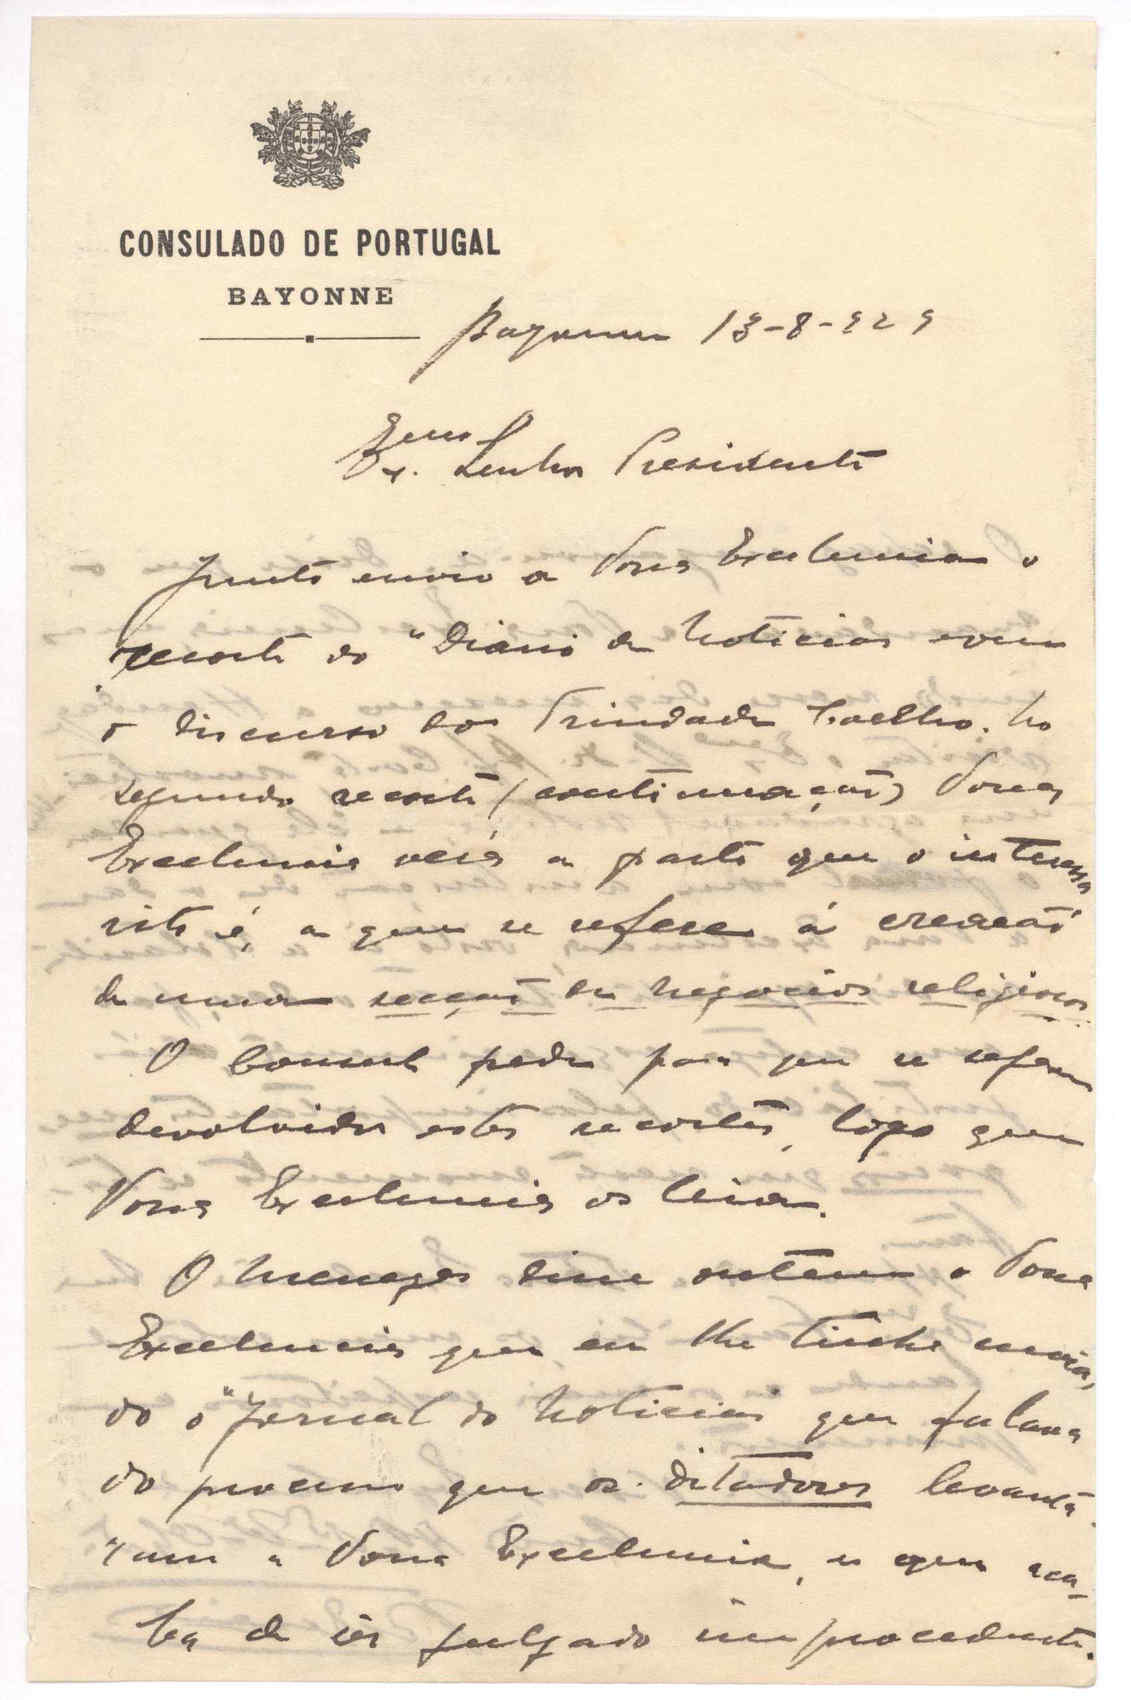 CONSULADO DE PORTUGAL
BAYONNE
Bayonne 13-8-929
Exmo Senhor Presidente
Junto envio a Vossa Excelencia o
recorte do "Diario de Noticias com
o discurso do Trindade Coelho. No
segundo recorte (continuação) Vossa
Excelencia verá a parte que o interessa
isto é, a que se refere á creação
de uma secção de negocios religiosos.
O Consul pede para que se sejam
devolvidos estes recortes, logo que
Vossa Excelencia os leia.
O Menezes disse ontem a Vossa
Excelencia que eu lhe tinha envia-
do o "Jornal de Noticias que falava
do processo que os ditadores levanta-
ram a Vossa Excelencia, e que aca-
ba de ser julgado improcedente.